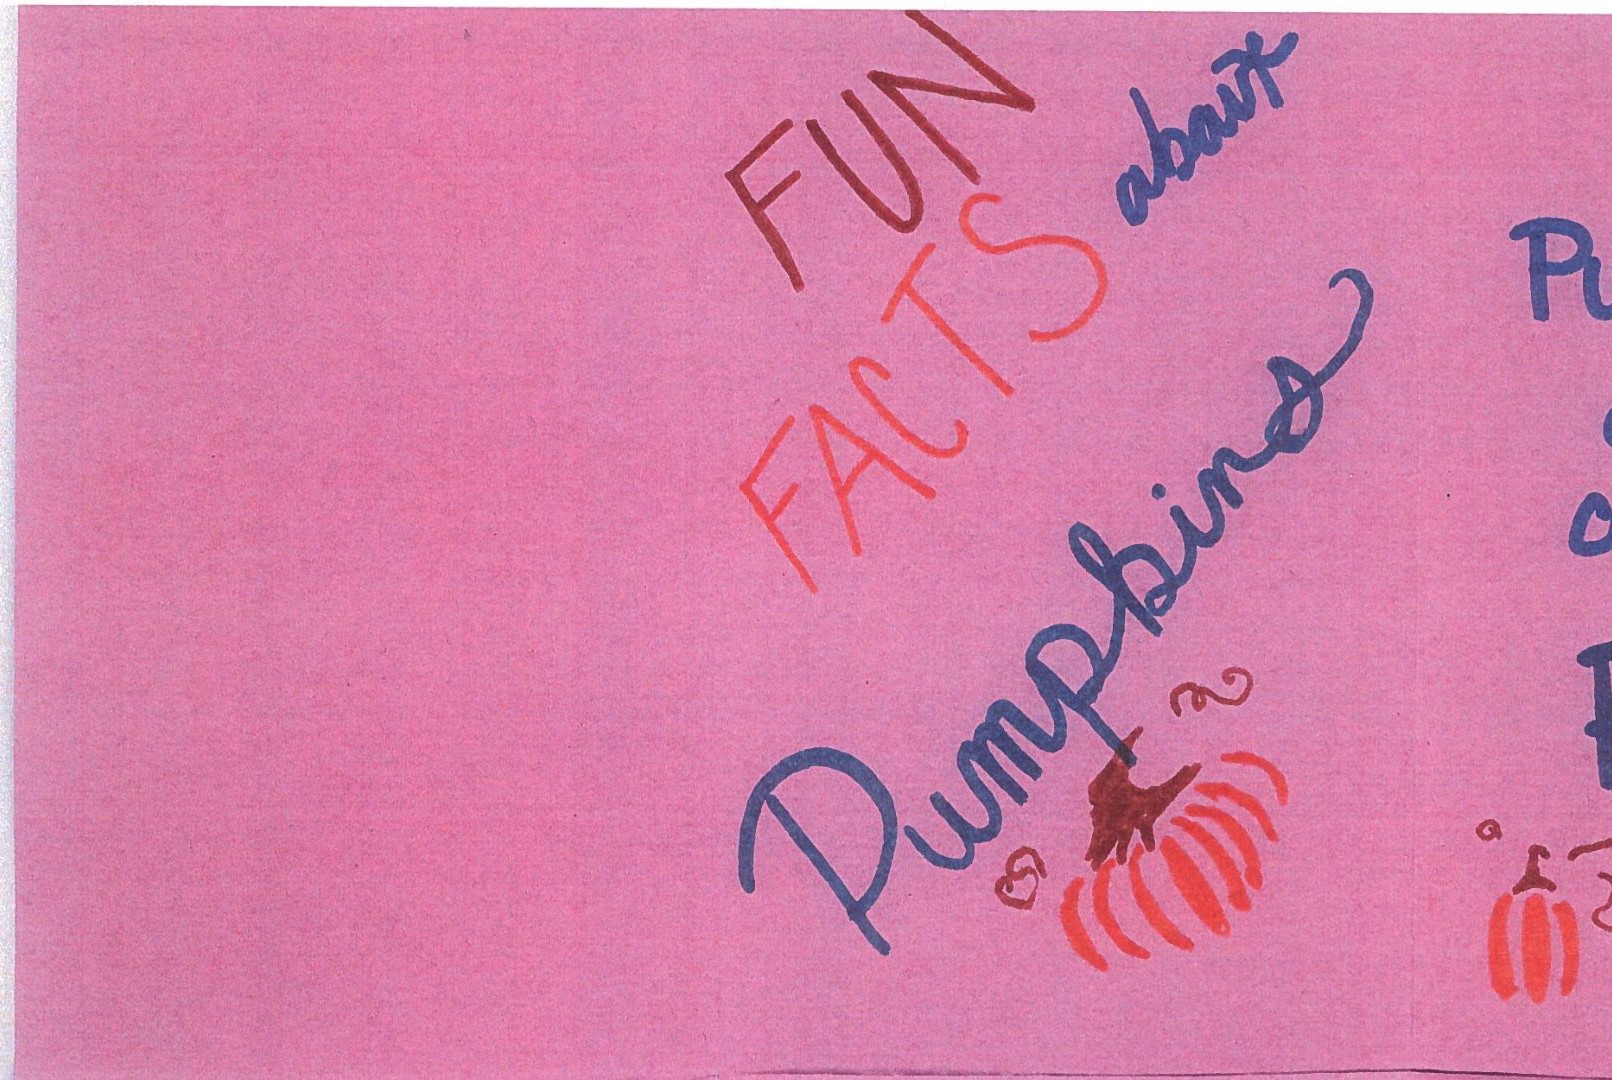 FUN
FACTS about
Pumpkins